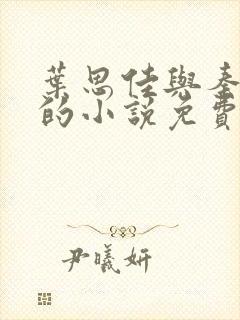 葉思佳與秦
的小説免費
尹曦妍